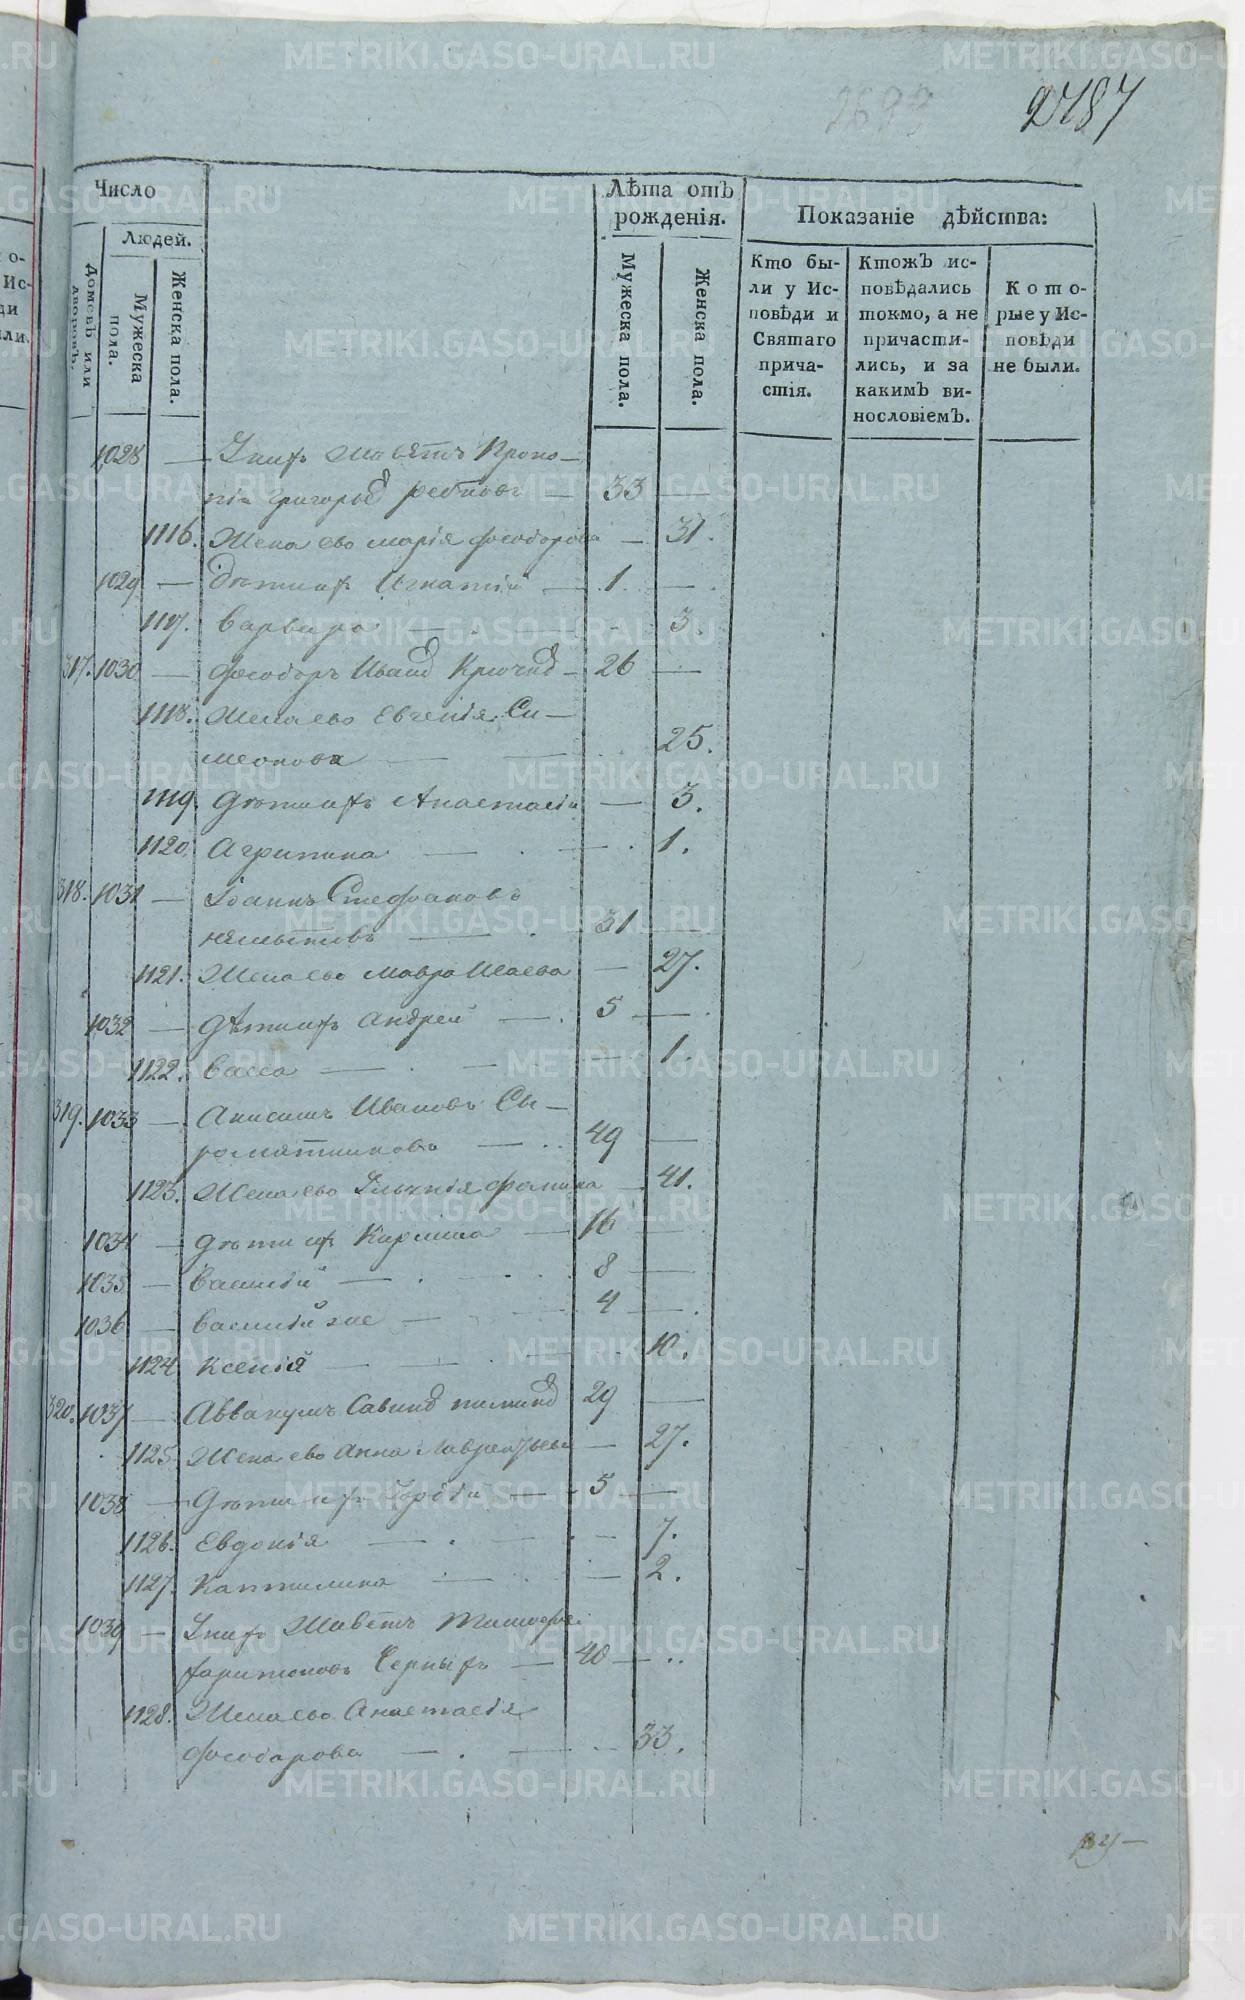 2787
Число
Людей.
Домовъ или дворовъ.
Мужеска пола.
Женска пола.
Лѣта отъ рожденія.
Мужеска пола.
Женска пола.
Показаніе дѣйства:
Кто бы-
ли у Ис-
повѣди и
Святаго
прича-
стія.
Ктожъ ис-
повѣдались
токмо, а не
причасти-
лись, и за
какимъ ви-
нословіемъ.
Кото-
рые у Ис-
повѣди
не были.
1028 — Унихъ Живетъ Проко-
пій Григорьев — 33 —
1116. Жена ево Марія Феодорова — 31.
1029 — Дети ихъ Игнатій — 1. —
1117. Варвара — 3.
317. 1030 — Феодоръ Иванов Крючков — 26 —
1118. Жена ево Евгенія Си-
меонова — 25.
1119. Дети ихъ Анастасія — 3.
1120. Агрипина — 1.
318. 1031 — Іоаннъ Стефановъ
— 31 —
1121. Жена ево Мавра Исаева — 27.
1032 — Дѣти ихъ Андрей — 5 —
1122. Васса — 1.
319. 1033 — Анисимъ Ивановъ Сы-
ромятниковъ — 49 —
1123. Жена ево Фомина — 41.
1034 — Дети ихъ Кирилла — 16 —
1035 — Василій — 8 —
1036 — Василій же — 4 —
1124 Ксенія — 10.
320. 1037 — Аввакумъ Савинов 29 —
1125. Жена ево Анна Лаврентьева — 27.
1038 — Дети ихъ — 5 —
1126. Евдокія — 7.
1127. Капитолина — 2.
1039 — Унихъ Живетъ Тимофей
Харитоновъ Черныхъ — 40 —
1128. Жена ево Анастасія
Феодорова — 33.
METRIKI.GASO-URAL.RU